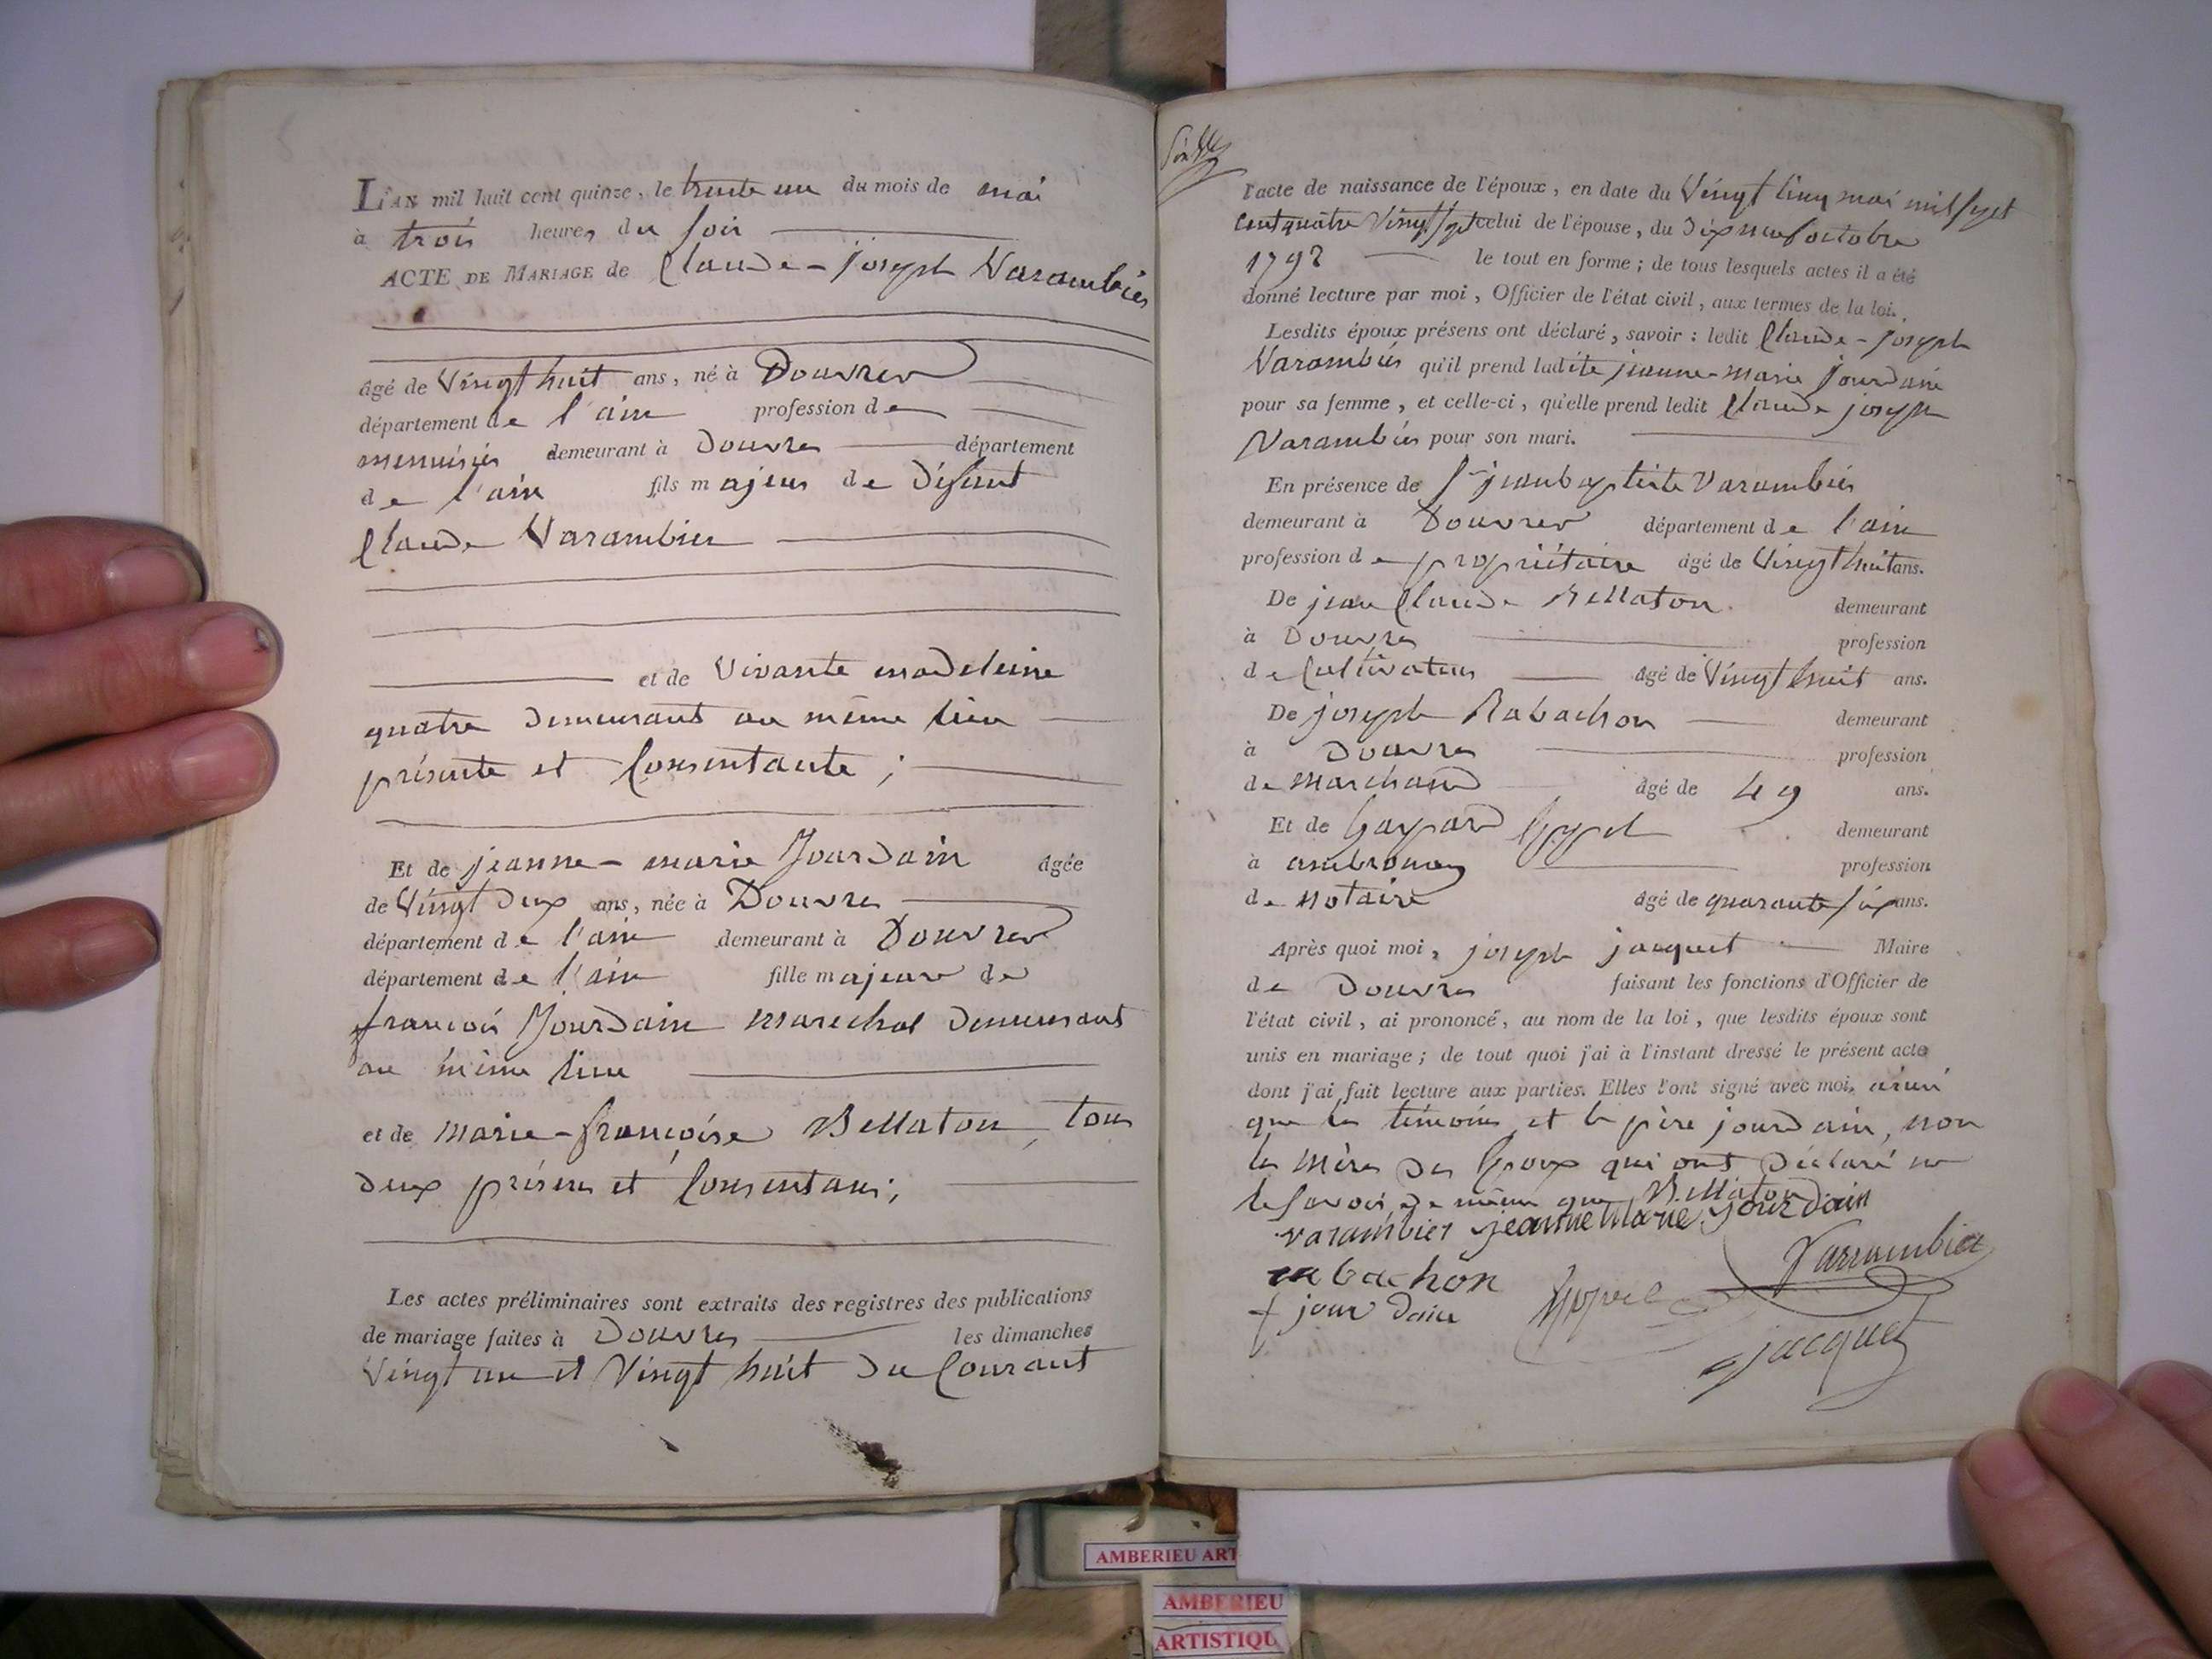 L'AN mil huit cent quinze, le trente un du mois de mai
à trois heures du soir
ACTE DE MARIAGE de Claude-joseph Varambier
âgé de Vingt huit ans, né à Douvres
département de l'ain profession de
menuisier demeurant à Douvres département
de l'ain fils majeur de Défunt
Claude Varambier
et de Vivante madeleine
quatre demeurant au même lieu
présente et Consentante ;
Et de jeanne-marie Jourdain âgée
de Vingt Deux ans, née à Douvres
département de l'ain demeurant à Douvres
département de l'ain fille majeure de
françois Jourdain marechal demeurant
au même lieu
et de marie-françoise Bellaton, tous
deux présens et Consentans ;
Les actes préliminaires sont extraits des registres des publications
de mariage faites à Douvres les dimanches
Vingt un et Vingt huit du Courant
l'acte de naissance de l'époux, en date du Vingt Cinq mai mil sept
cent quatre Vingt sept celui de l'épouse, du Dix neuf octobre
1792 le tout en forme ; de tous lesquels actes il a été
donné lecture par moi, Officier de l'état civil, aux termes de la loi.
Lesdits époux présens ont déclaré, savoir : ledit Claude-joseph
Varambier qu'il prend ladite jeanne-marie Jourdain
pour sa femme, et celle-ci, qu'elle prend ledit Claude joseph
Varambier pour son mari.
En présence de Sr jean baptiste Varambier
demeurant à Douvres département de l'ain
profession de propriétaire âgé de Vingt huit ans.
De jean Claude Bellaton demeurant
à Douvres profession
de Cultivateur âgé de Vingt huit ans.
De joseph Rabachon demeurant
à Douvres profession
de marchand âgé de 49 ans.
Et de Gaspard demeurant
à ambronay profession
de notaire âgé de quarante six ans.
Après quoi moi, joseph jacquet Maire
de Douvres faisant les fonctions d'Officier de
l'état civil, ai prononcé, au nom de la loi, que lesdits époux sont
unis en mariage ; de tout quoi j'ai à l'instant dressé le présent acte
dont j'ai fait lecture aux parties. Elles l'ont signé avec moi, ainsi
que les témoins et le père jourdain, non
les mères des Epoux qui ont déclaré ne
le savoir, de même que Bellaton
varambier jeanne Marie jourdain
Varrambier
rabachon
f jourdain
jacquet
AMBERIEU ART
AMBERIEU
ARTISTIQU